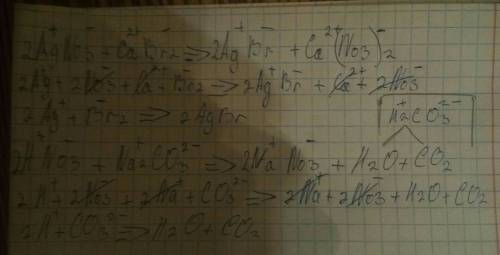 2Ag⁺NO₃⁻ + Ca²⁺Br₂⁻ => 2Ag⁺Br⁻ + Ca²⁺(NO₃⁻)₂
2Ag⁺ + 2NO₃⁻ + Ca²⁺ + Br₂⁻ => 2Ag⁺Br⁻ + Ca²⁺ + 2NO₃⁻
2Ag⁺ + Br₂⁻ => 2AgBr
H₂⁺CO₃²⁻
2H⁺NO₃⁻ + Na₂⁺CO₃²⁻ => 2Na⁺NO₃⁻ + H₂O + CO₂
2H⁺ + 2NO₃⁻ + 2Na⁺ + CO₃²⁻ => 2Na⁺ + 2NO₃⁻ + H₂O + CO₂
2H⁺ + CO₃²⁻ => H₂O + CO₂